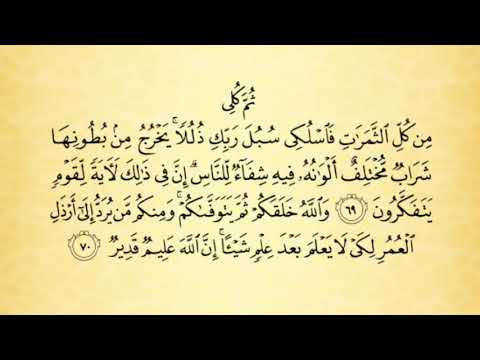 ثُمَّ كُلِى
مِن كُلِّ ٱلثَّمَرَٰتِ فَٱسْلُكِى سُبُلَ رَبِّكِ ذُلُلًا ۚ يَخْرُجُ مِنۢ بُطُونِهَا
شَرَابٌ مُّخْتَلِفٌ أَلْوَٰنُهُۥ فِيهِ شِفَآءٌ لِّلنَّاسِ ۗ إِنَّ فِى ذَٰلِكَ لَـَٔايَةً لِّقَوْمٍ
يَتَفَكَّرُونَ ٦٩ وَٱللَّهُ خَلَقَكُمْ ثُمَّ يَتَوَفَّىٰكُمْ ۚ وَمِنكُم مَّن يُرَدُّ إِلَىٰٓ أَرْذَلِ
ٱلْعُمُرِ لِكَىْ لَا يَعْلَمَ بَعْدَ عِلْمٍ شَيْـًٔا ۚ إِنَّ ٱللَّهَ عَلِيمٌ قَدِيرٌ ٧٠